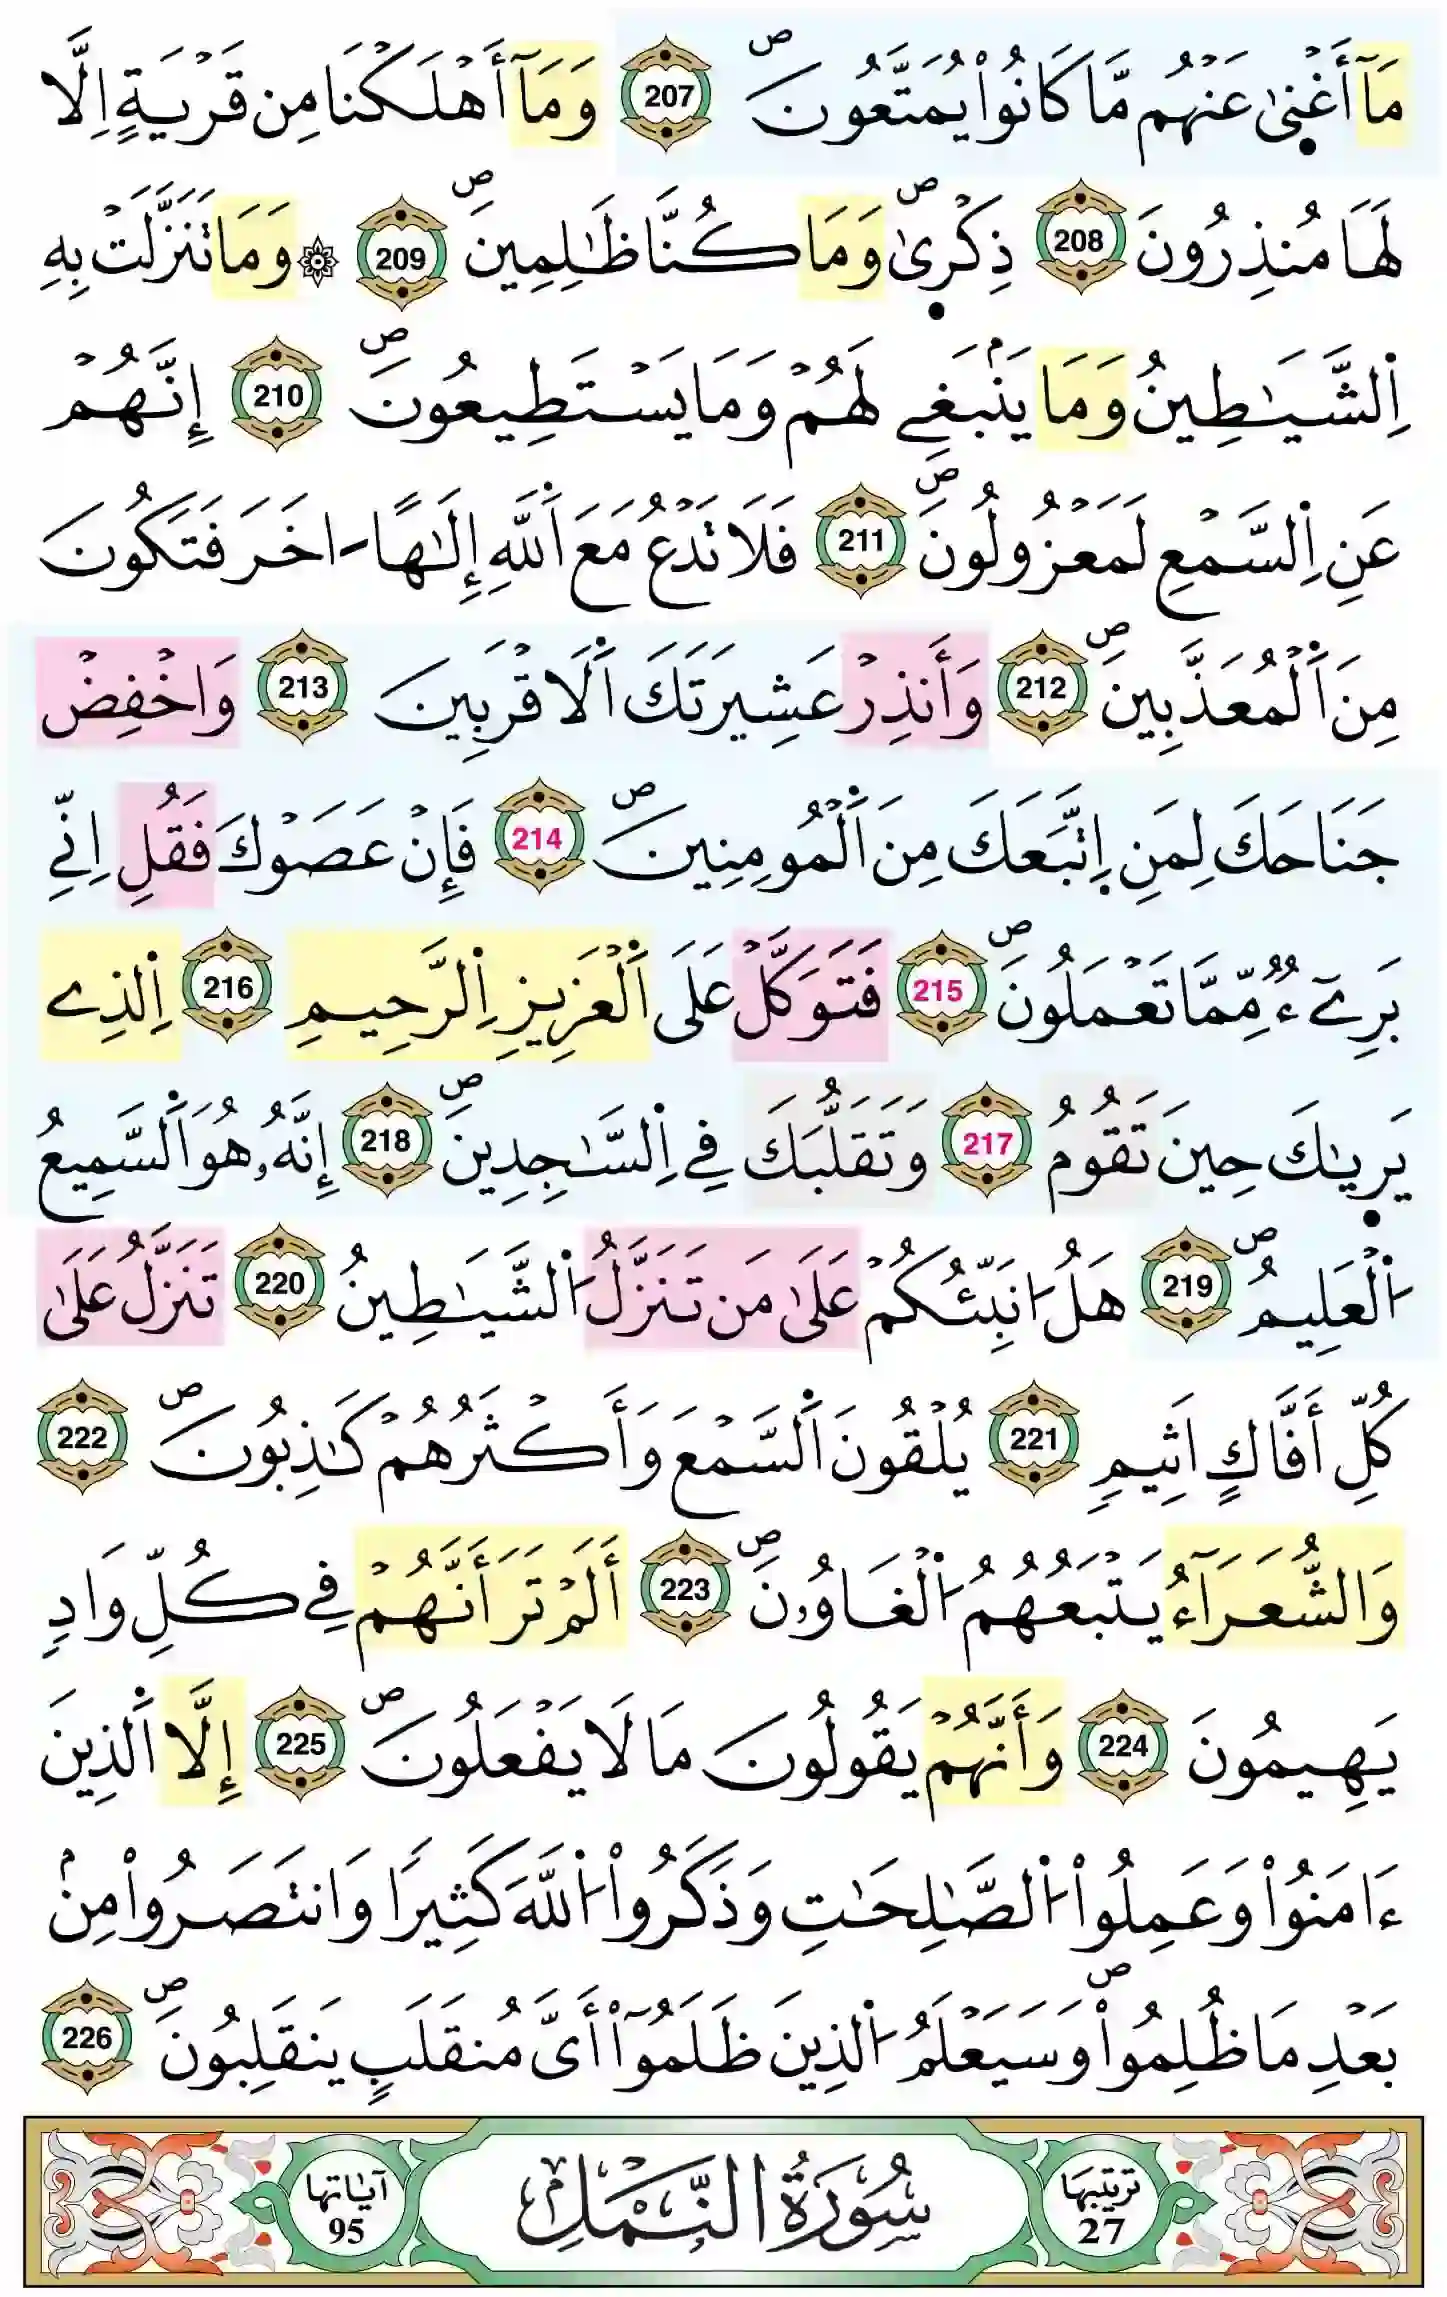 مَآ أَغْن۪ىٰ عَنْهُم مَّا كَانُواْ يُمَتَّعُونَۖ 207 وَمَآ أَهْلَكْنَا مِن قَرْيَةٍ اِلَّا
لَهَا مُنذِرُونَ 208 ذِكْر۪ىٰۖ وَمَا كُنَّا ظَٰلِمِينَۖ 209 ۞ وَمَا تَنَزَّلَتْ بِهِ
اِ۬لشَّيَٰطِينُ وَمَا يَنۢبَغِے لَهُمْ وَمَا يَسْتَطِيعُونَۖ 210 إِنَّهُمْ
عَنِ اِ۬لسَّمْعِ لَمَعْزُولُونَۖ 211 فَلَا تَدْعُ مَعَ اَ۬للَّهِ إِلَٰهاً اٰخَرَ فَتَكُونَ
مِنَ اَ۬لْمُعَذَّبِينَۖ 212 وَأَنذِرْ عَشِيرَتَكَ اَ۬لَاقْرَبِينَ 213 وَاخْفِضْ
جَنَاحَكَ لِمَنِ اِ۪تَّبَعَكَ مِنَ اَ۬لْمُومِنِينَۖ 214 فَإِنْ عَصَوْكَ فَقُلِ اِنِّے
بَرِےٓءٌ مِّمَّا تَعْمَلُونَۖ 215 فَتَوَكَّلْ عَلَى اَ۬لْعَزِيزِ اِ۬لرَّحِيمِ 216 اِ۬لذِے
يَر۪يٰكَ حِينَ تَقُومُ 217 وَتَقَلُّبَكَ فِے اِ۬لسَّٰجِدِينَۖ 218 إِنَّهُۥ هُوَ اَ۬لسَّمِيعُ
اُ۬لْعَلِيمُۖ 219 هَلُ ا۟نَبِّئُكُمْ عَلَىٰ مَن تَنَزَّلُ اُ۬لشَّيَٰطِينُ 220 تَنَزَّلُ عَلَىٰ
كُلِّ أَفَّاكٍ اَثِيمٖ 221 يُلْقُونَ اَ۬لسَّمْعَ وَأَكْثَرُهُمْ كَٰذِبُونَۖ 222
وَالشُّعَرَآءُ يَتْبَعُهُمُ اُ۬لْغَاوُۥنَۖ 223 أَلَمْ تَرَ أَنَّهُمْ فِے كُلِّ وَادٖ
يَهِيمُونَ 224 وَأَنَّهُمْ يَقُولُونَ مَا لَا يَفْعَلُونَۖ 225 إِلَّا اَ۬لذِينَ
ءَامَنُواْ وَعَمِلُواْ اُ۬لصَّٰلِحَٰتِ وَذَكَرُواْ اُ۬للَّهَ كَثِيراً وَانتَصَرُواْ مِنۢ
بَعْدِ مَا ظُلِمُواْۖ وَسَيَعْلَمُ اُ۬لذِينَ ظَلَمُوٓاْ أَىَّ مُنقَلَبٖ يَنقَلِبُونَۖ 226
ترتيبها 27
سُورَةُ النَّمْلِ
آياتها 95